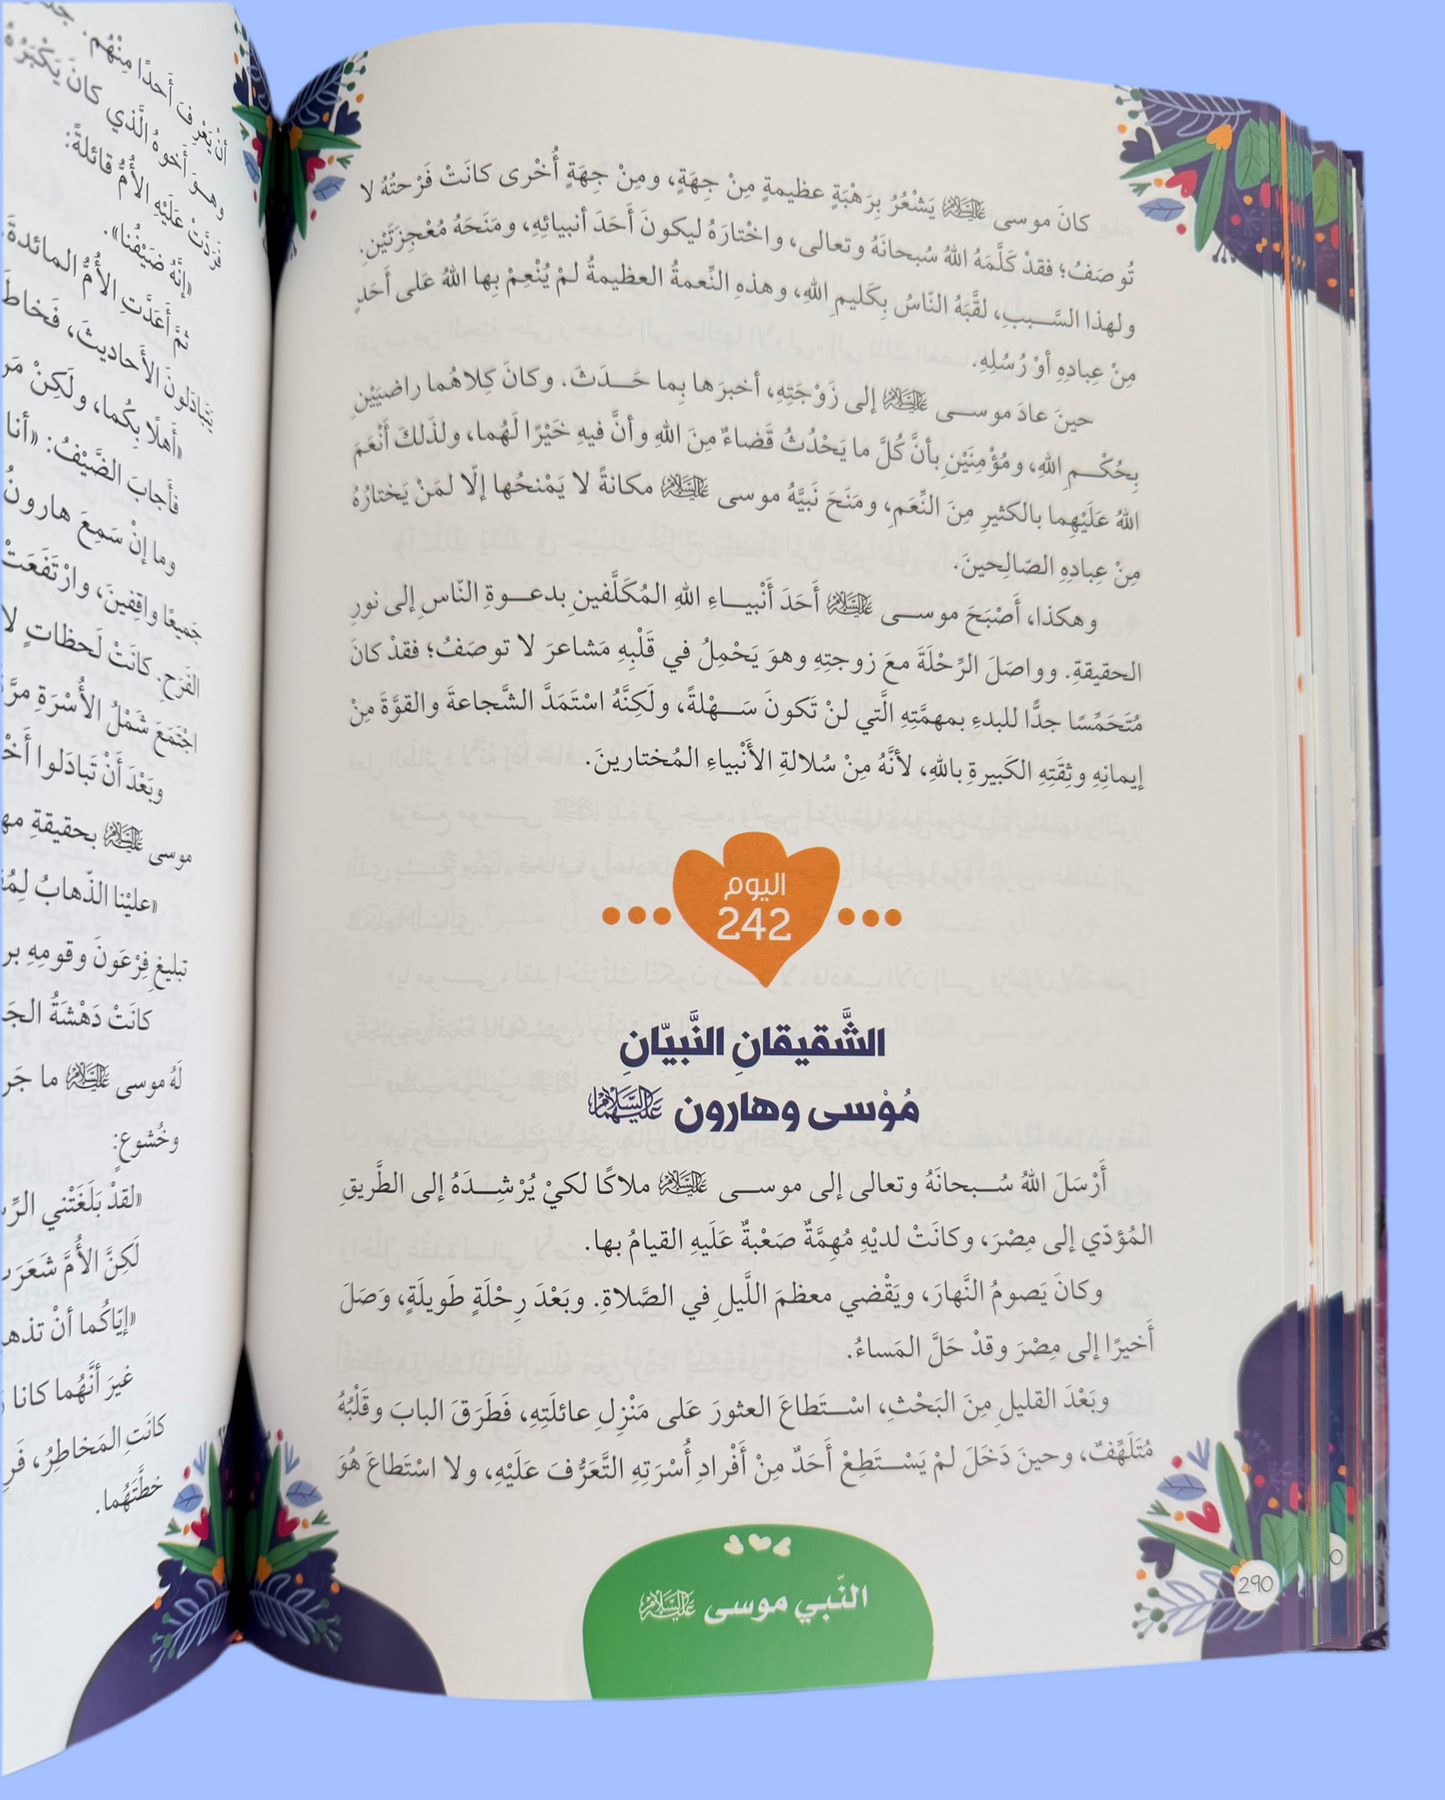 كانَ موسى عليه السلام يَشْعُرُ بِرَهْبَةٍ عظيمةٍ مِنْ جِهَةٍ، ومِنْ جِهَةٍ أُخْرى كانَتْ فَرْحتُهُ لا
تُوصَفُ؛ فقدْ كَلَّمَهُ اللهُ سُبحانَهُ وتعالى، واخْتارَهُ ليكونَ أَحَدَ أنبيائِهِ، ومَنَحَهُ مُعْجِزَتَيْنِ.
ولهذا السَّببِ، لقَّبَهُ النّاسُ بِكَليمِ اللهِ، وهذهِ النِّعمةُ العظيمةُ لمْ يُنْعِمْ بِها اللهُ عَلى أَحَدٍ
مِنْ عِبادِهِ أوْ رُسُلِهِ.
حينَ عادَ موسى عليه السلام إلى زَوْجَتِهِ، أخبرَها بِما حَدَثَ. وكانَ كِلاهُما راضيَيْنِ
بِحُكْمِ اللهِ، ومُؤْمِنَيْنِ بأنَّ كُلَّ ما يَحْدُثُ قَضاءٌ مِنَ اللهِ وأنَّ فيهِ خَيْرًا لَهُما، ولذَلكَ أَنْعَمَ
اللهُ عَلَيْهِما بالكثيرِ مِنَ النِّعَمِ، ومَنَحَ نَبيَّهُ موسى عليه السلام مكانةً لا يَمْنحُها إلّا لمَنْ يَختارُهُ
مِنْ عِبادِهِ الصّالِحينَ.
وهكذا، أَصْبَحَ موسى عليه السلام أَحَدَ أَنْبياءِ اللهِ المُكَلَّفينِ بِدعوةِ النّاسِ إلى نورِ
الحقيقةِ. وواصَلَ الرِّحْلَةَ معَ زوجتِهِ وهوَ يَحْمِلُ في قَلْبِهِ مَشاعرَ لا توصَفُ؛ فقدْ كانَ
مُتَحَمِّسًا جدًّا للبدءِ بمهمَّتِهِ الَّتي لنْ تَكونَ سَهْلةً، ولَكِنَّهُ اسْتَمَدَّ الشَّجاعةَ والقوَّةَ مِنْ
إيمانِهِ وثِقَتِهِ الكَبيرةِ باللهِ، لأنَّهُ مِنْ سُلالةِ الأَنْبياءِ المُختارينَ.
اليوم
242
الشَّقيقانِ النَّبيّانِ
مُوْسى وهارون عليهما السلام
أَرْسَلَ اللهُ سُبحانَهُ وتعالى إلى موسى عليه السلام ملاكًا لكيْ يُرْشِدَهُ إلى الطَّريقِ
المُؤدّي إلى مِصْرَ، وكانَتْ لديْهِ مُهِمَّةٌ صَعْبةٌ عَلَيهِ القيامُ بها.
وكانَ يَصومُ النَّهارَ، ويَقْضي معظمَ اللَّيلِ فِي الصَّلاةِ. وبَعْدَ رِحْلَةٍ طَويلَةٍ، وَصَلَ
أَخيرًا إلى مِصْرَ وقدْ حَلَّ المَساءُ.
وبَعْدَ القليلِ مِنَ البَحْثِ، اسْتَطاعَ العثورَ عَلى مَنْزِلِ عائلَتِهِ، فَطَرَقَ البابَ وقَلْبُهُ
مُتَلَهِّفٌ، وحينَ دَخَلَ لمْ يَسْتَطِعْ أَحَدٌ مِنْ أَفْرادِ أُسْرَتِهِ التَّعَرُّفَ عَلَيْهِ، ولا اسْتَطاعَ هُوَ
النّبي موسى عليه السلام
290
أنْ يَعْرِفَ أَحدًا مِنْهُم.
وهوَ أَخوهُ الَّذي كانَ يَكْبَرُهُ
فَردَّتْ عَلَيْهِ الأُمُّ قائلةً:
«إنَّهُ ضَيْفُنا».
ثمَّ أَعَدَّتِ الأُمُّ المائدةَ
يَتَبادَلونَ الأَحاديثَ، فَخاطَ
«أَهلًا بِكُما، ولَكِنْ مَن
فأَجابَ الضَّيْفُ: «أنا
وما إنْ سَمِعَ هارونُ
جَميعًا واقِفينَ، وارْتَفَعَتْ
الفَرَحِ. كانَتْ لَحظاتٍ لا
اجْتَمَعَ شَمْلُ الأُسْرَةِ مرَّ
وبَعْدَ أَنْ تَبادَلوا أَخْ
موسى عليه السلام بحقيقةِ مه
«علَيْنا الذّهابُ لِمُ
تبليغِ فِرْعَونَ وقومِهِ بر
كانَتْ دَهْشَةُ الجَ
لَهُ موسى عليه السلام ما جَر
وخُشوعٍ:
«لقدْ بَلَغَتْني الرِّس
لَكِنَّ الأُمَّ شَعَرَت
«إيّاكُما أنْ تذه
غيرَ أنَّهُما كانا
كانَتِ المَخاطِرُ، فَر
خطَّتَهُما.